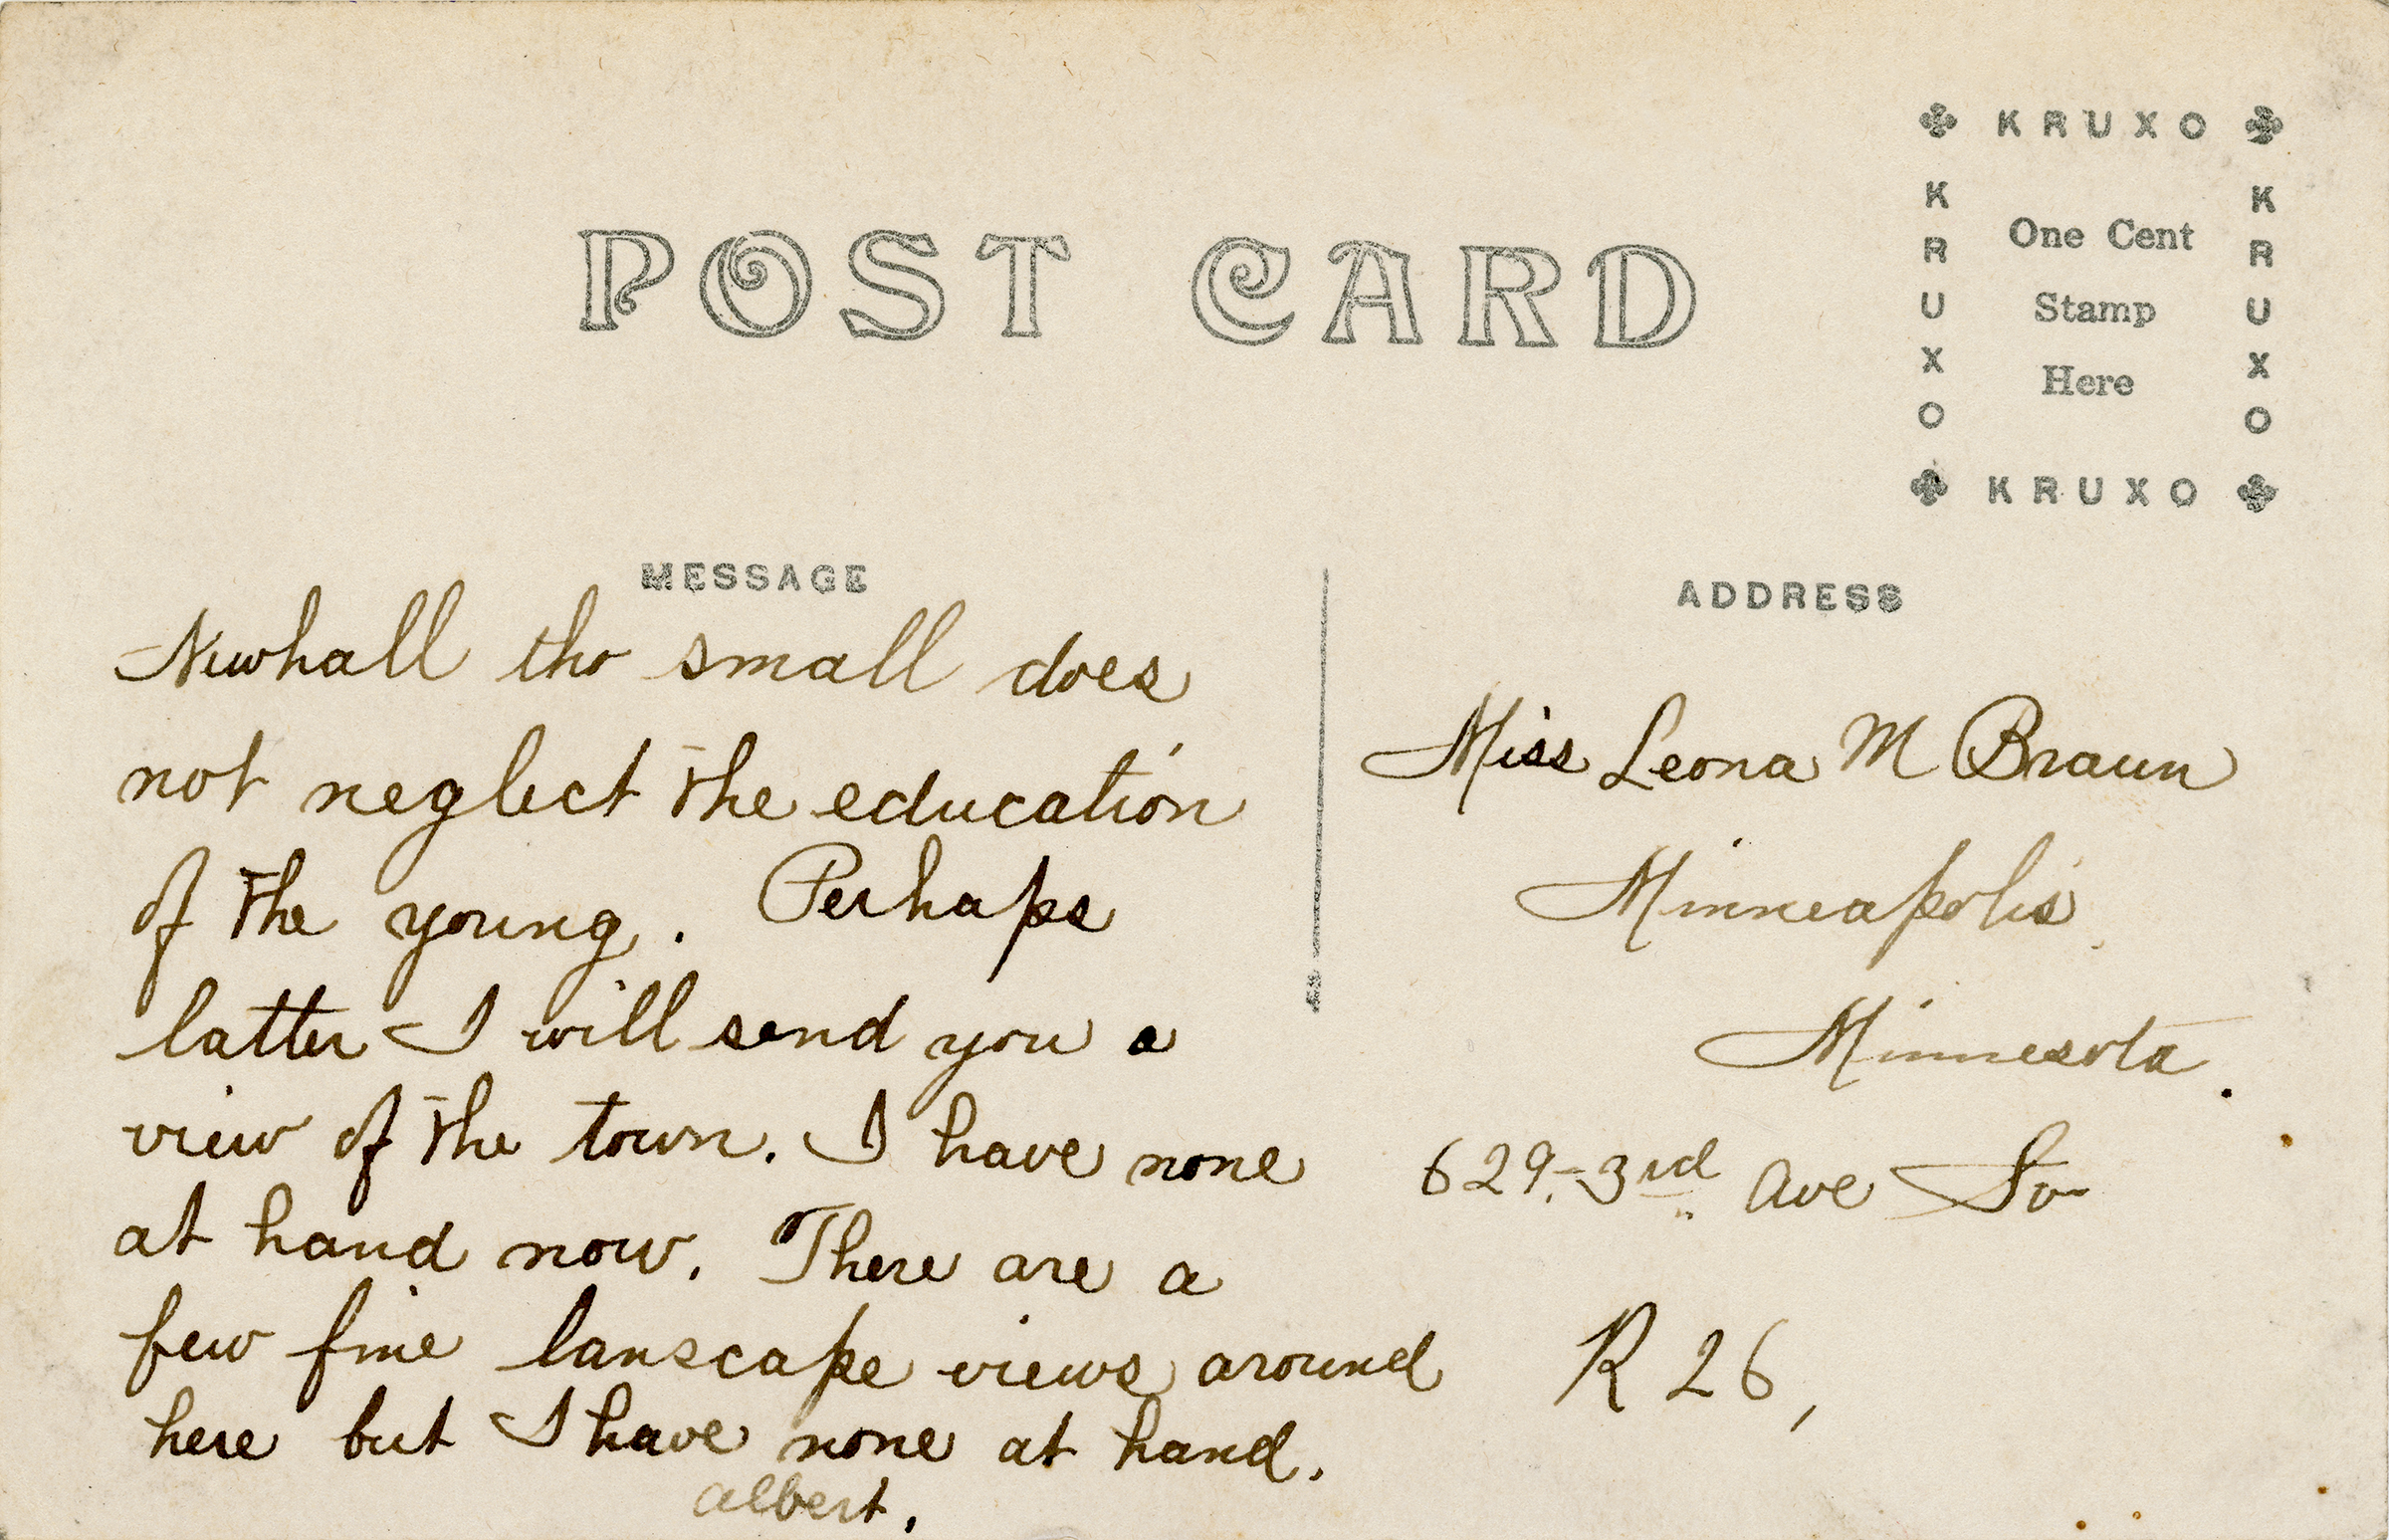 POST CARD
KRUXO
KRUXO
KRUXO
One Cent
Stamp
Here
KRUXO
MESSAGE
Newhall tho small does
not neglect the education
of the young. Perhaps
latter I will send you a
view of the town. I have none
at hand now. There are a
few fine lanscape views around
here but I have none at hand.
Albert.
ADDRESS
Miss Leona M Braun
Minneapolis
Minnesota.
629.-3rd Ave So
R 26,